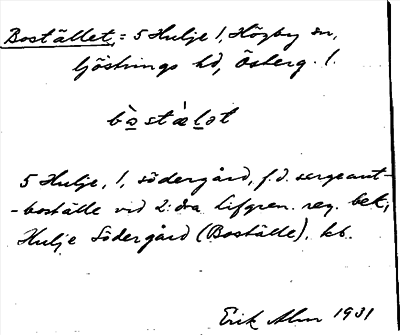 Bostället, = 5 Hulje /, Högby sn,
Göstrings hd, Österg. l.
bò̤stálət
5 Hulje, /, södergård, f.d. sergeant-
-boställe vid 2:dra lifgren. reg. bek,
Hulje Södergård (Boställe), kb.
Erik Alm 1931